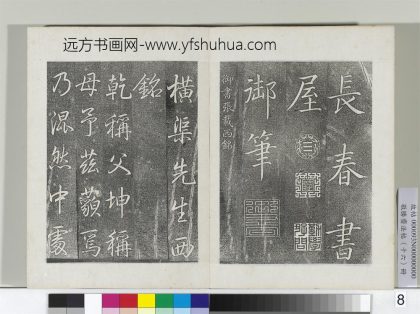 远方书画网-www.yfshuhua.com
長春書
屋
御筆
御書張載西銘
横渠先生西
銘
乾稱父坤稱
母予兹藐焉
乃混然中處
8